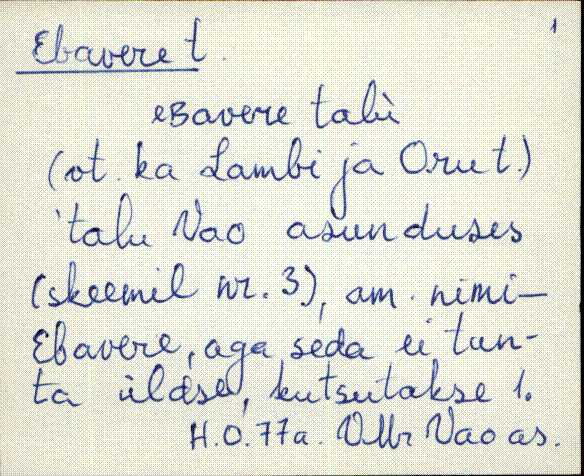 1
Ebavere t.
eBavere talù
(vt. ka Lambi ja Oru t.)
'talu Vao asunduses
(skeemil nr. 3), am. nimi-
Ebavere, aga seda ei tun-
ta üldse, kutsutakse 1.
H.O.77a. VMr Vao as.